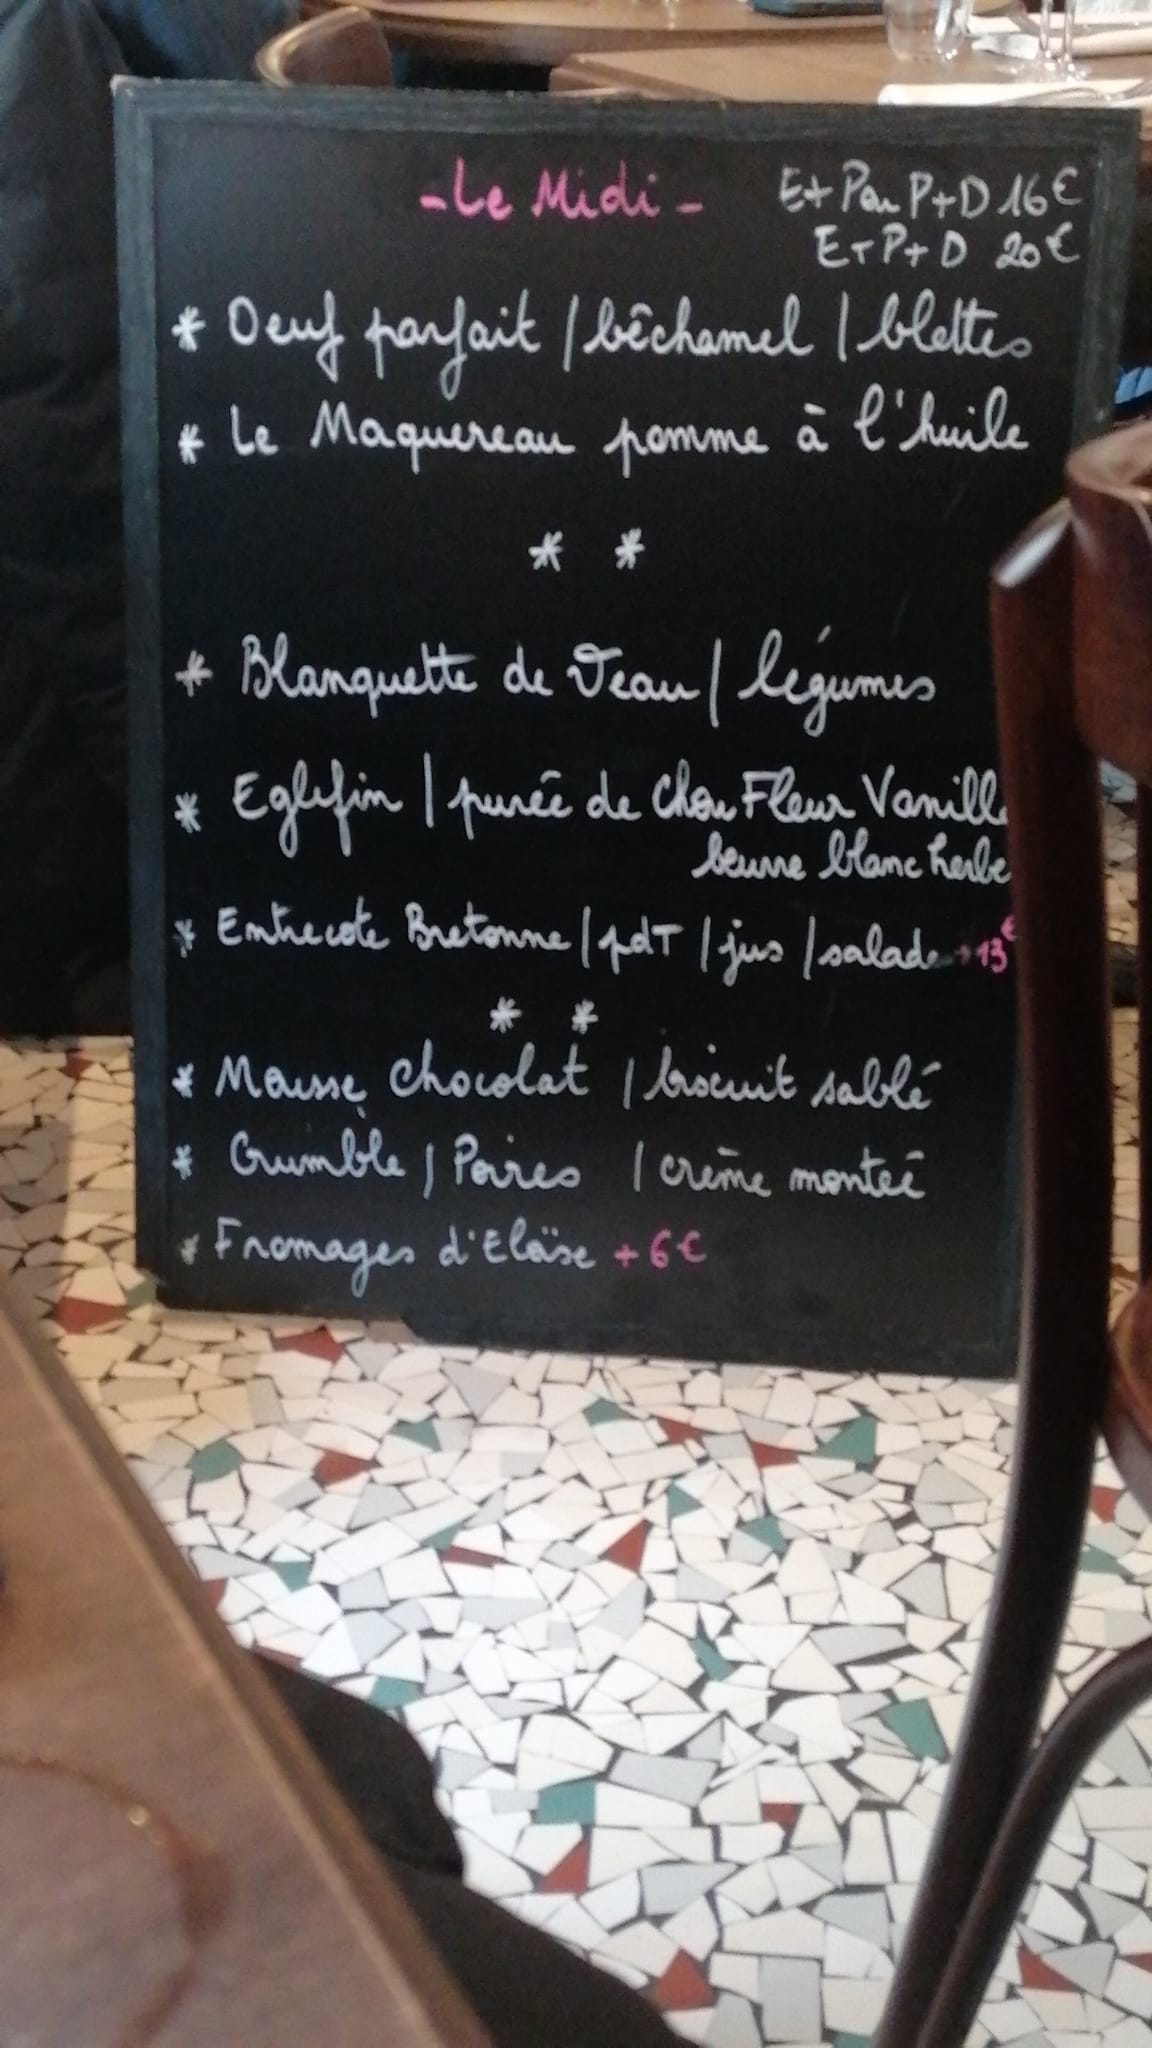 - Le Midi -
E + P ou P + D 16€
E + P + D 20€
* Oeuf parfait / bêchamel / blettes
* Le Maquereau pomme à l'huile
* *
* Blanquette de Veau / légumes
* Eglefin / purée de Chou Fleur Vanille
beurre blanc herbe
* Entrecote Bretonne / pdT / jus / salade + 13€
* *
* Mousse chocolat / biscuit sablé
* Crumble / Poires / crème montée
* Fromages d'Eloïse + 6€